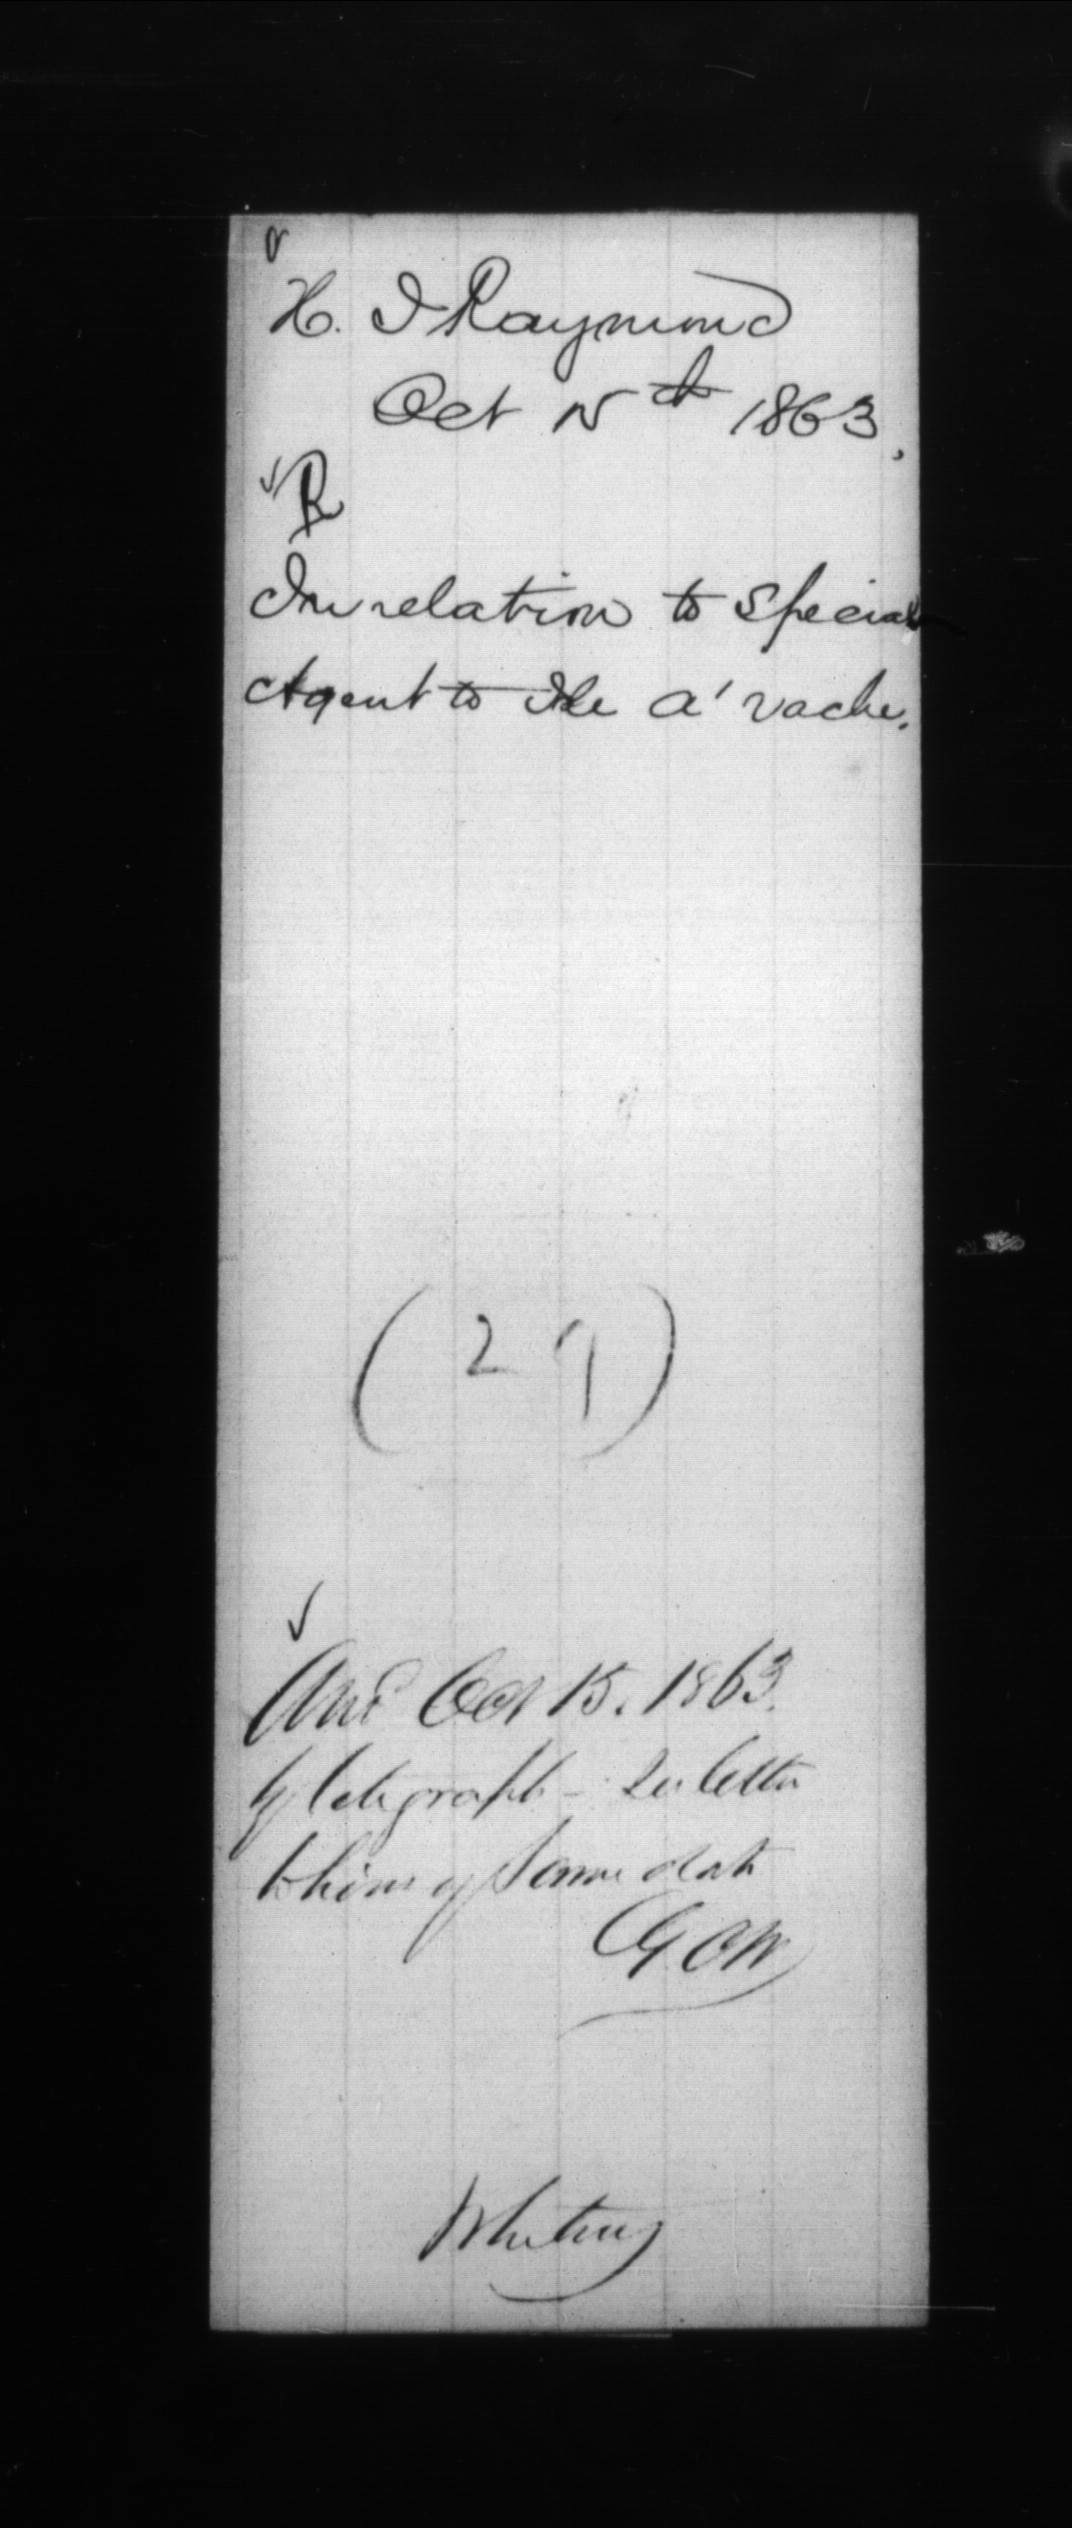 H. J Raymond
Oct 15th 1863.
R
In relation to Special
Agent to Ile a' vache.
(29)
Ansd Oct 15. 1863.
by telegraph - & letter
to him of same date
Whiting